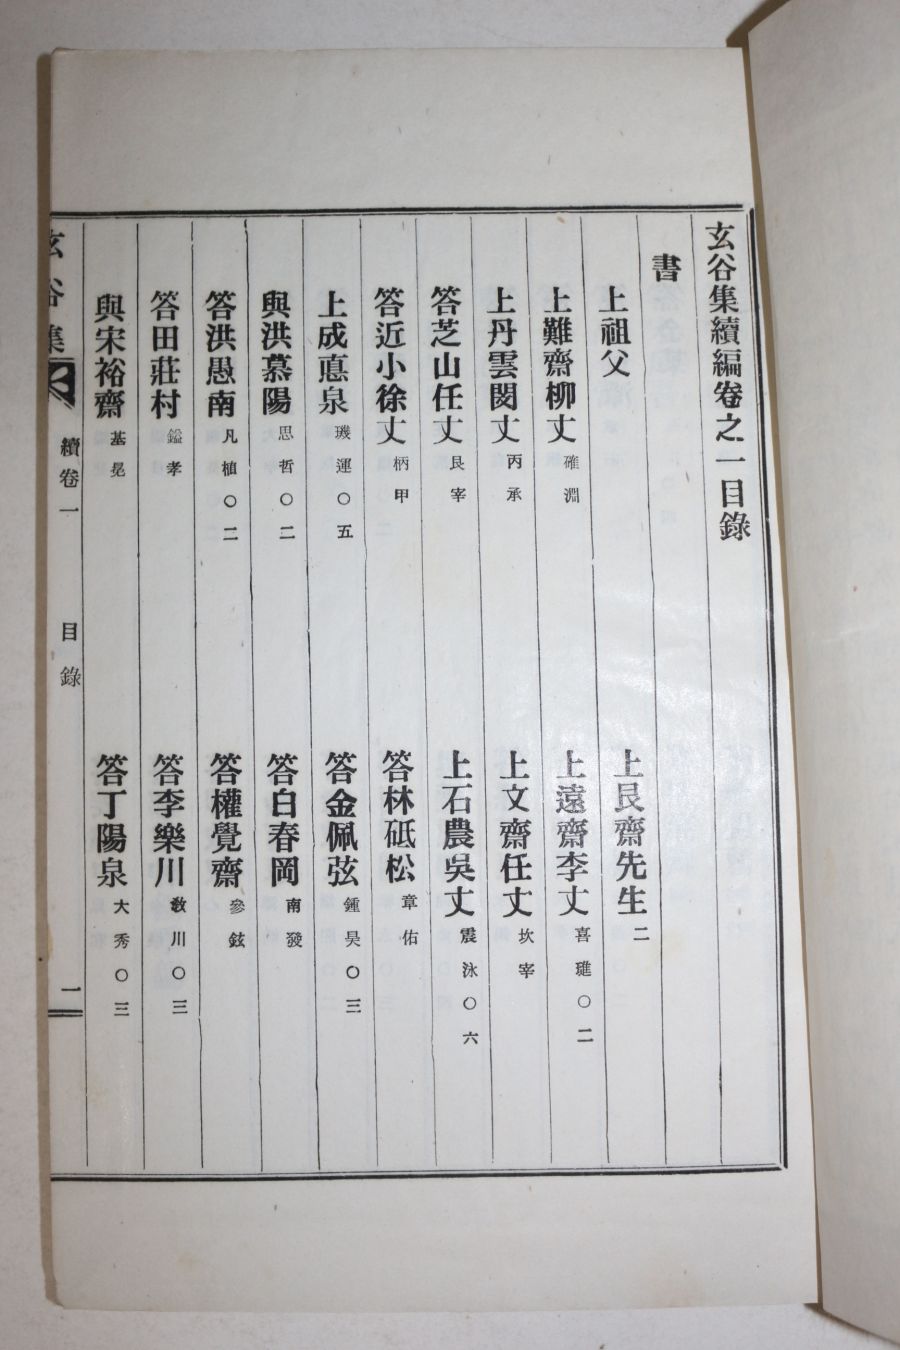 玄谷集續編卷之一目錄
書
上祖父 上艮齋先生 二
上難齋柳丈 確淵 上遠齋李丈 喜璡〇二
上丹雲閔丈 丙承 上文齋任丈 坎宰
答芝山任丈 艮宰 上石農吳丈 震泳〇六
答近小徐丈 柄甲 答林砥松 章佑
上成悳泉 璣運〇五 答金佩弦 鍾昊〇三
與洪慕陽 思哲〇二 答白春岡 南發
答洪愚南 凡植〇二 答權覺齋 參鉉
答田莊村 鎰孝 答李樂川 敎川〇三
與宋裕齋 基晃 答丁陽泉 大秀〇三
玄谷集 續卷一 目錄 一